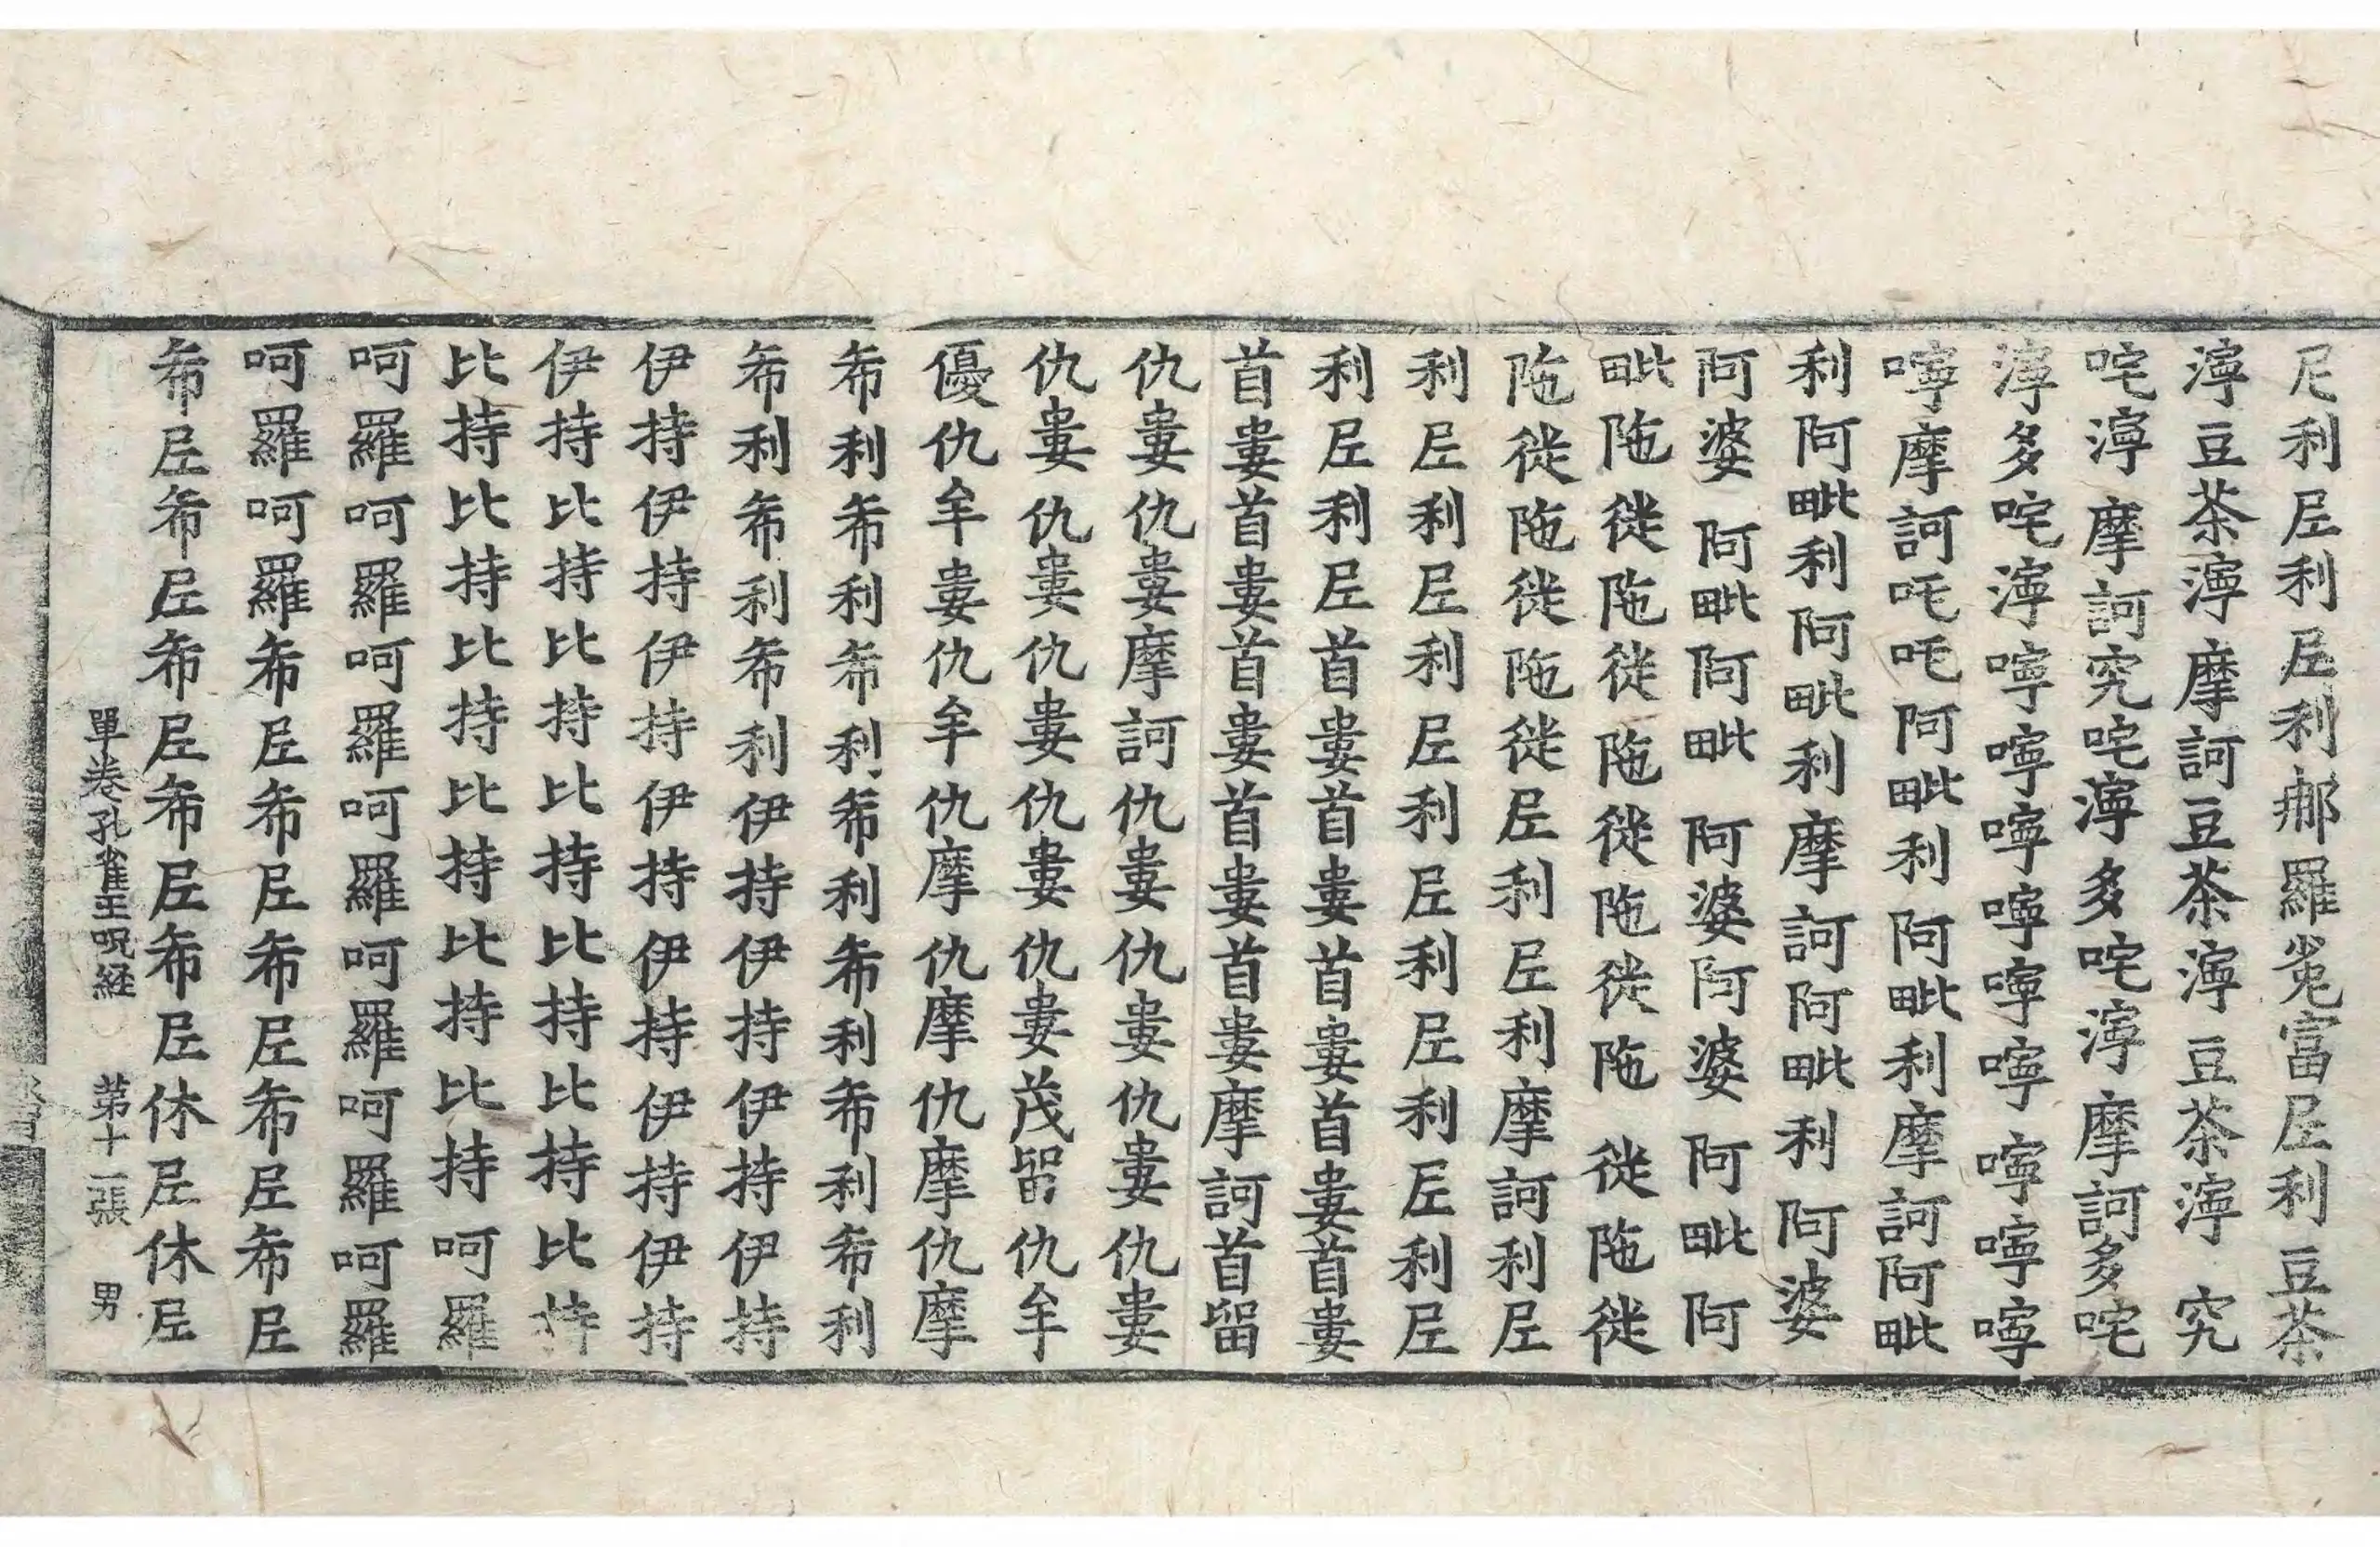 尼利𡰱利𡰱利𨚗羅嵬富𡰱利豆茶
𭰫豆茶𭰫摩訶豆茶𭰫豆茶𭰫究
咤𭰫摩訶究咤𭰫多咤𭰫摩訶多咤
𭰫多咤𭰫嚀嚀嚀嚀嚀嚀嚀嚀嚀
嚀摩訶吒吒阿毗利阿毗利摩訶阿毗
利阿毗利阿毗利摩訶阿毗利阿婆
阿婆阿毗阿毗阿婆阿婆阿毗阿
毗陁徙陁徙陁徙陁徙陁徙陁徙
陁徙陁徙陁徙𡰱利𡰱利摩訶利𡰱
利𡰱利𡰱利𡰱利𡰱利𡰱利𡰱利𡰱
利𡰱利𡰱首婁首婁首婁首婁首婁
首婁首婁首婁首婁首婁摩訶首留
仇婁仇婁摩訶仇婁仇婁仇婁仇婁
仇婁仇婁仇婁仇婁仇婁茂留仇牟
優仇牟婁仇牟仇摩仇摩仇摩仇摩
希利希利希利希利希利希利希利
希利希利希利伊持伊持伊持伊持
伊持伊持伊持伊持伊持伊持伊持
伊持比持比持比持比持比持比持
比持比持比持比持比持比持呵羅
呵羅呵羅呵羅呵羅呵羅呵羅呵羅
呵羅呵羅希𡰱希𡰱希𡰱希𡰱希𡰱
希𡰱希𡰱希𡰱希𡰱希𡰱休𡰱休𡰱
單卷孔雀王呪経 第十一張 男